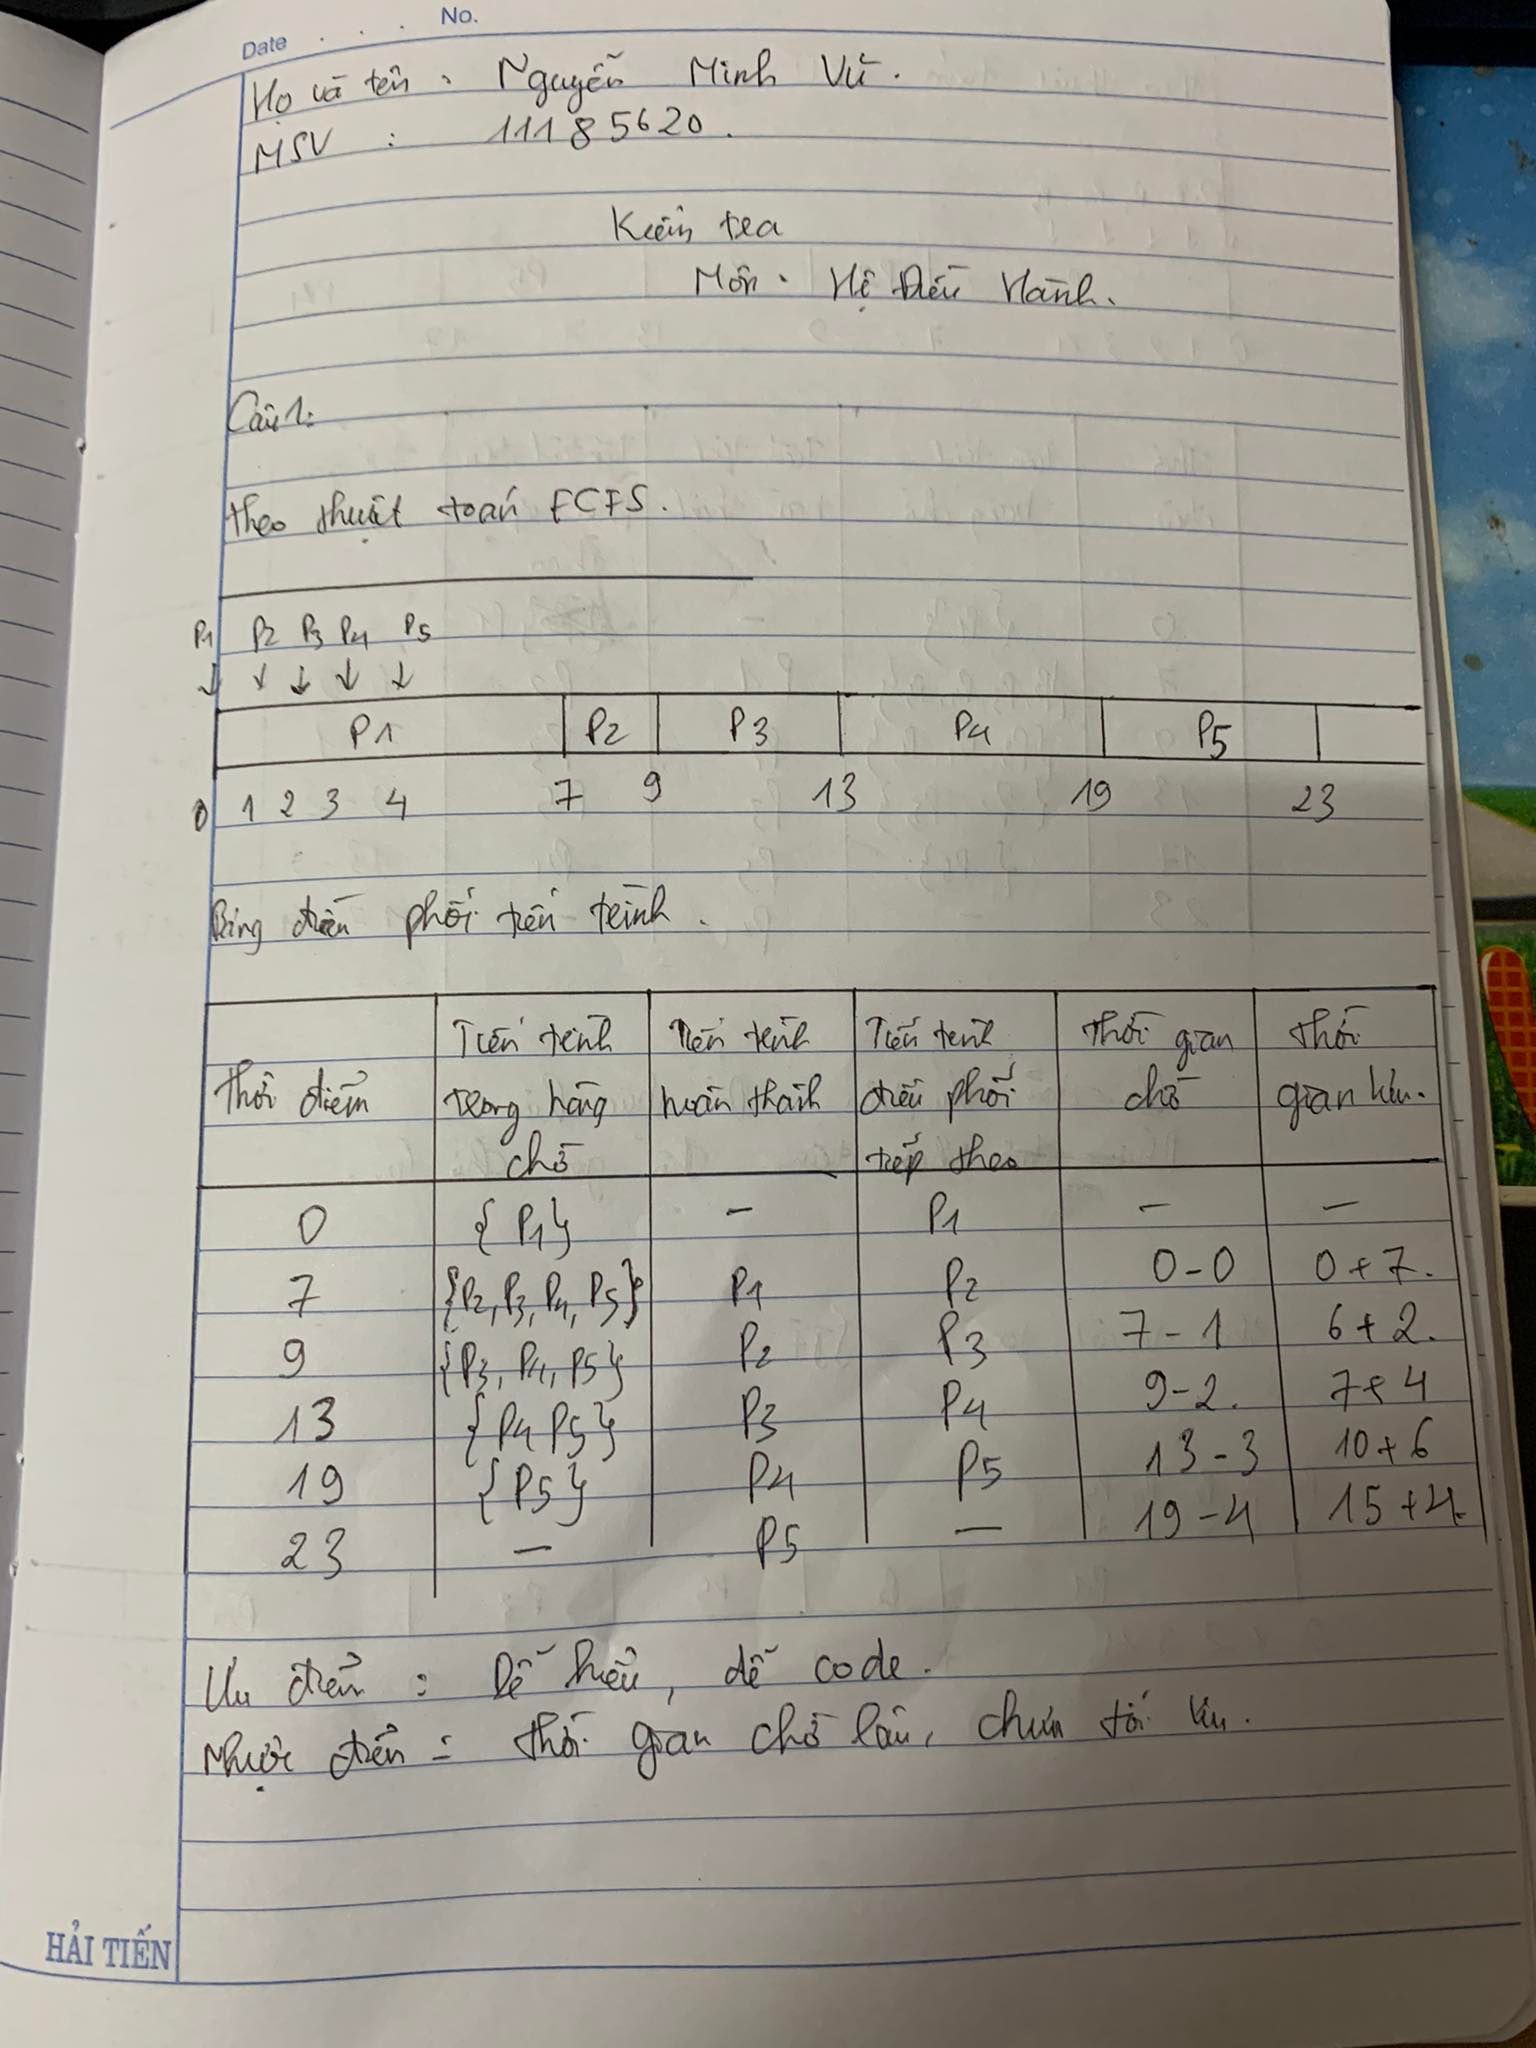 Date . . . No.
Họ và tên : Nguyễn Minh Vũ.
MSV : 11185620.
Kiểm tra
Môn . Hệ Điều Hành.
Câu 1:
Theo thuật toán FCFS.
P1 P2 P3 P4 P5
P1 P2 P3 P4 P5
0 1 2 3 4 7 9 13 19 23
Bảng điều phối tiến trình.
Thời điểm Tiến trình trong hàng chờ Tiến trình hoàn thành Tiến trình điều phối tiếp theo Thời gian chờ Thời gian lưu.
0 {P1} - P1 - -
7 {P2, P3, P4, P5} P1 P2 0-0 0+7.
9 {P3, P4, P5} P2 P3 7-1 6+2.
13 {P4 P5} P3 P4 9-2. 7+4
19 {P5} P4 P5 13-3 10+6
23 - P5 - 19-4 15+4.
Ưu điểm : Dễ hiểu, dễ code.
Nhược điểm : Thời gian chờ lâu, chưa tối ưu.
HẢI TIẾN